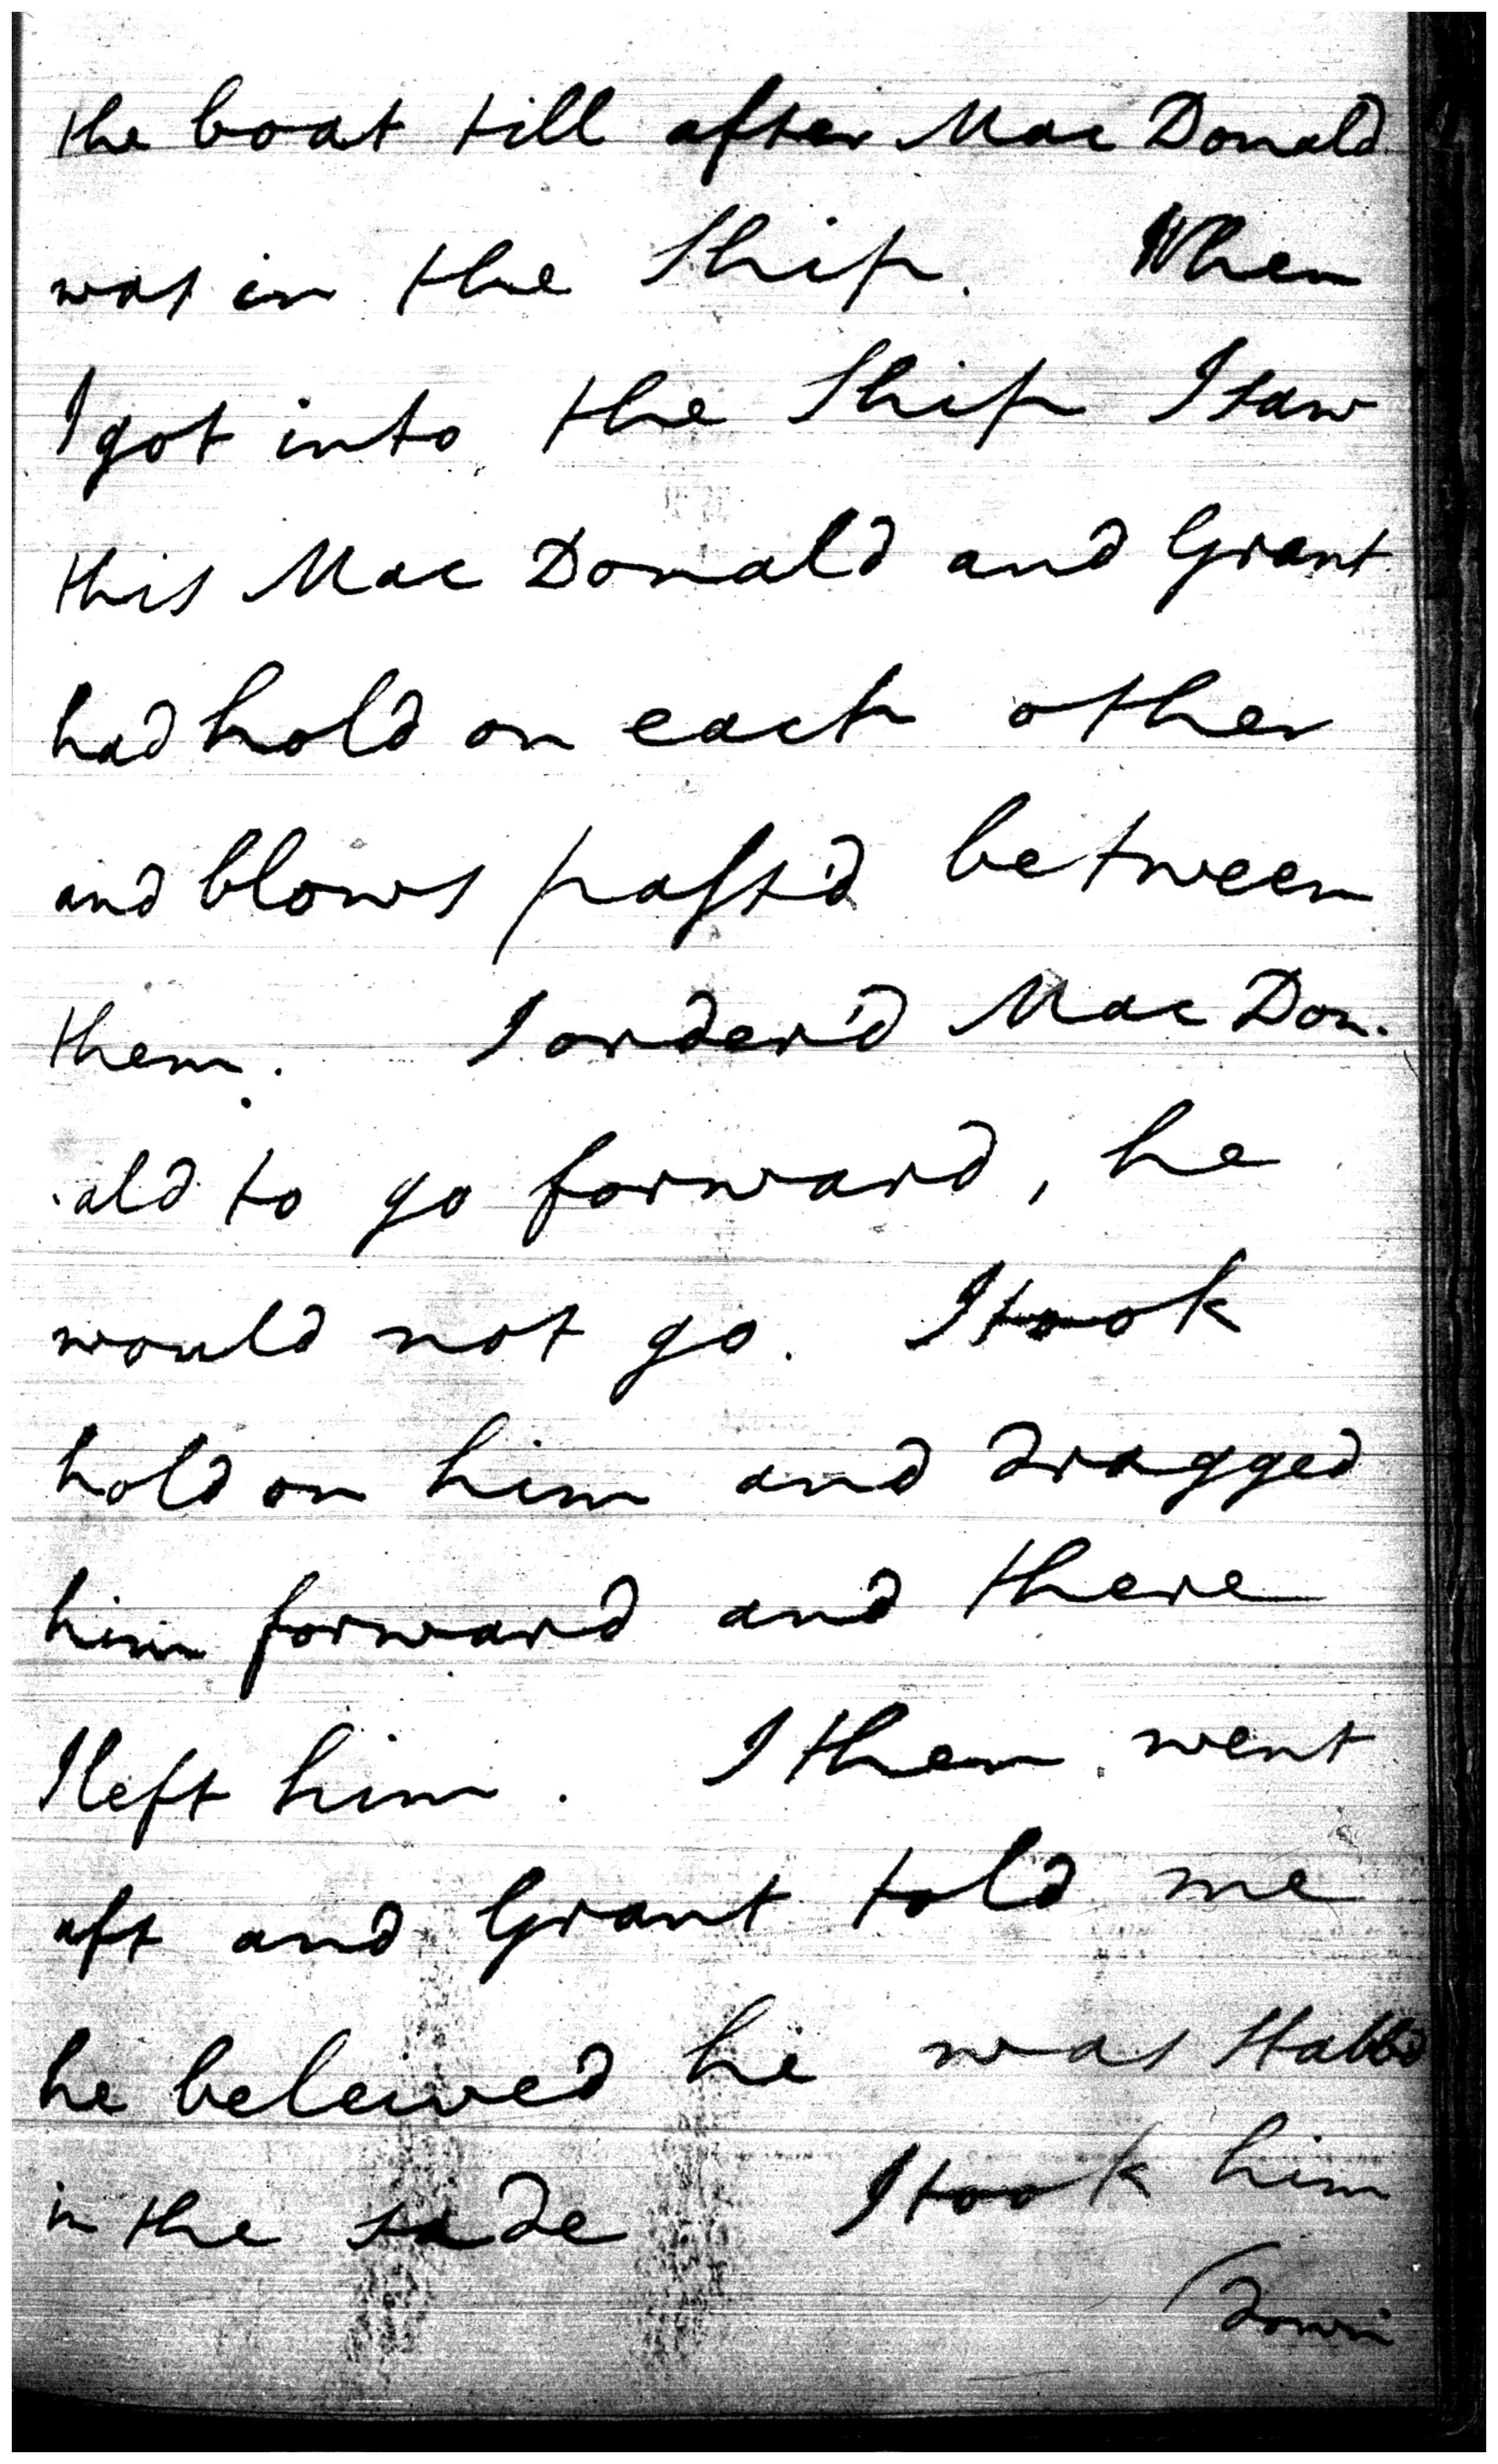 the boat till after Mac Donald
was in the Ship. When
I got into the Ship I saw
this Mac Donald and Grant
had hold on each other
and blows pass'd between
them. I order'd Mac Don-
-ald to go forward, he
would not go. I took
hold on him and dragged
him forward and there
I left him. I then went
aft and Grant told me
he beleived he was stabb'd
in the side I took him
down